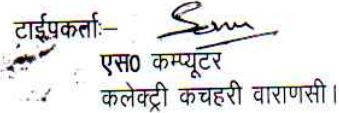 टाईपकर्ताः–
एस0 कम्प्यूटर
कलेक्ट्री कचहरी वाराणसी।